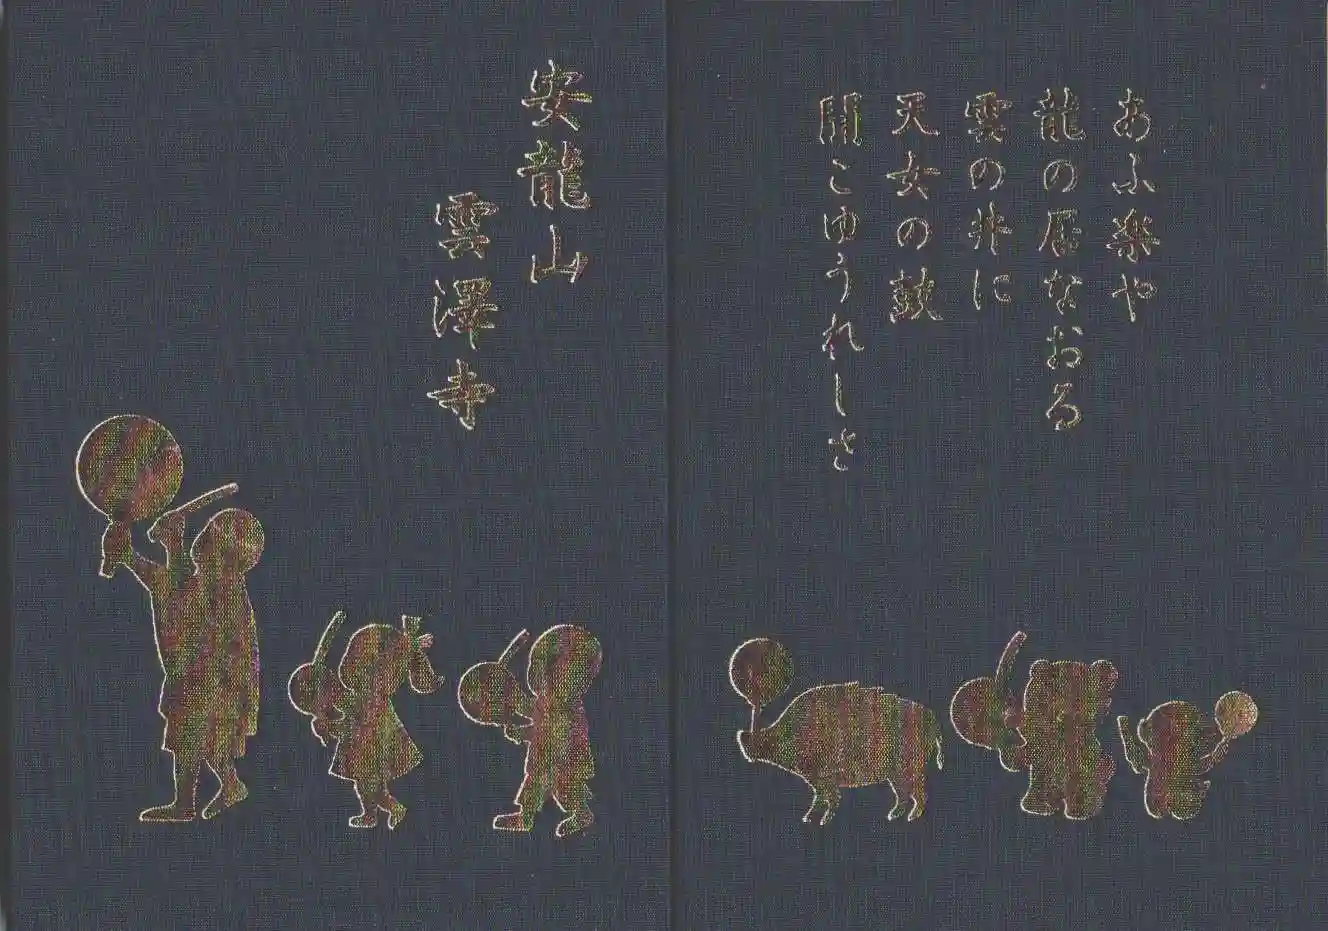 あふ楽や
龍の居なおる
雲の井に
天女の鼓
聞こゆうれしさ
安龍山
雲澤寺